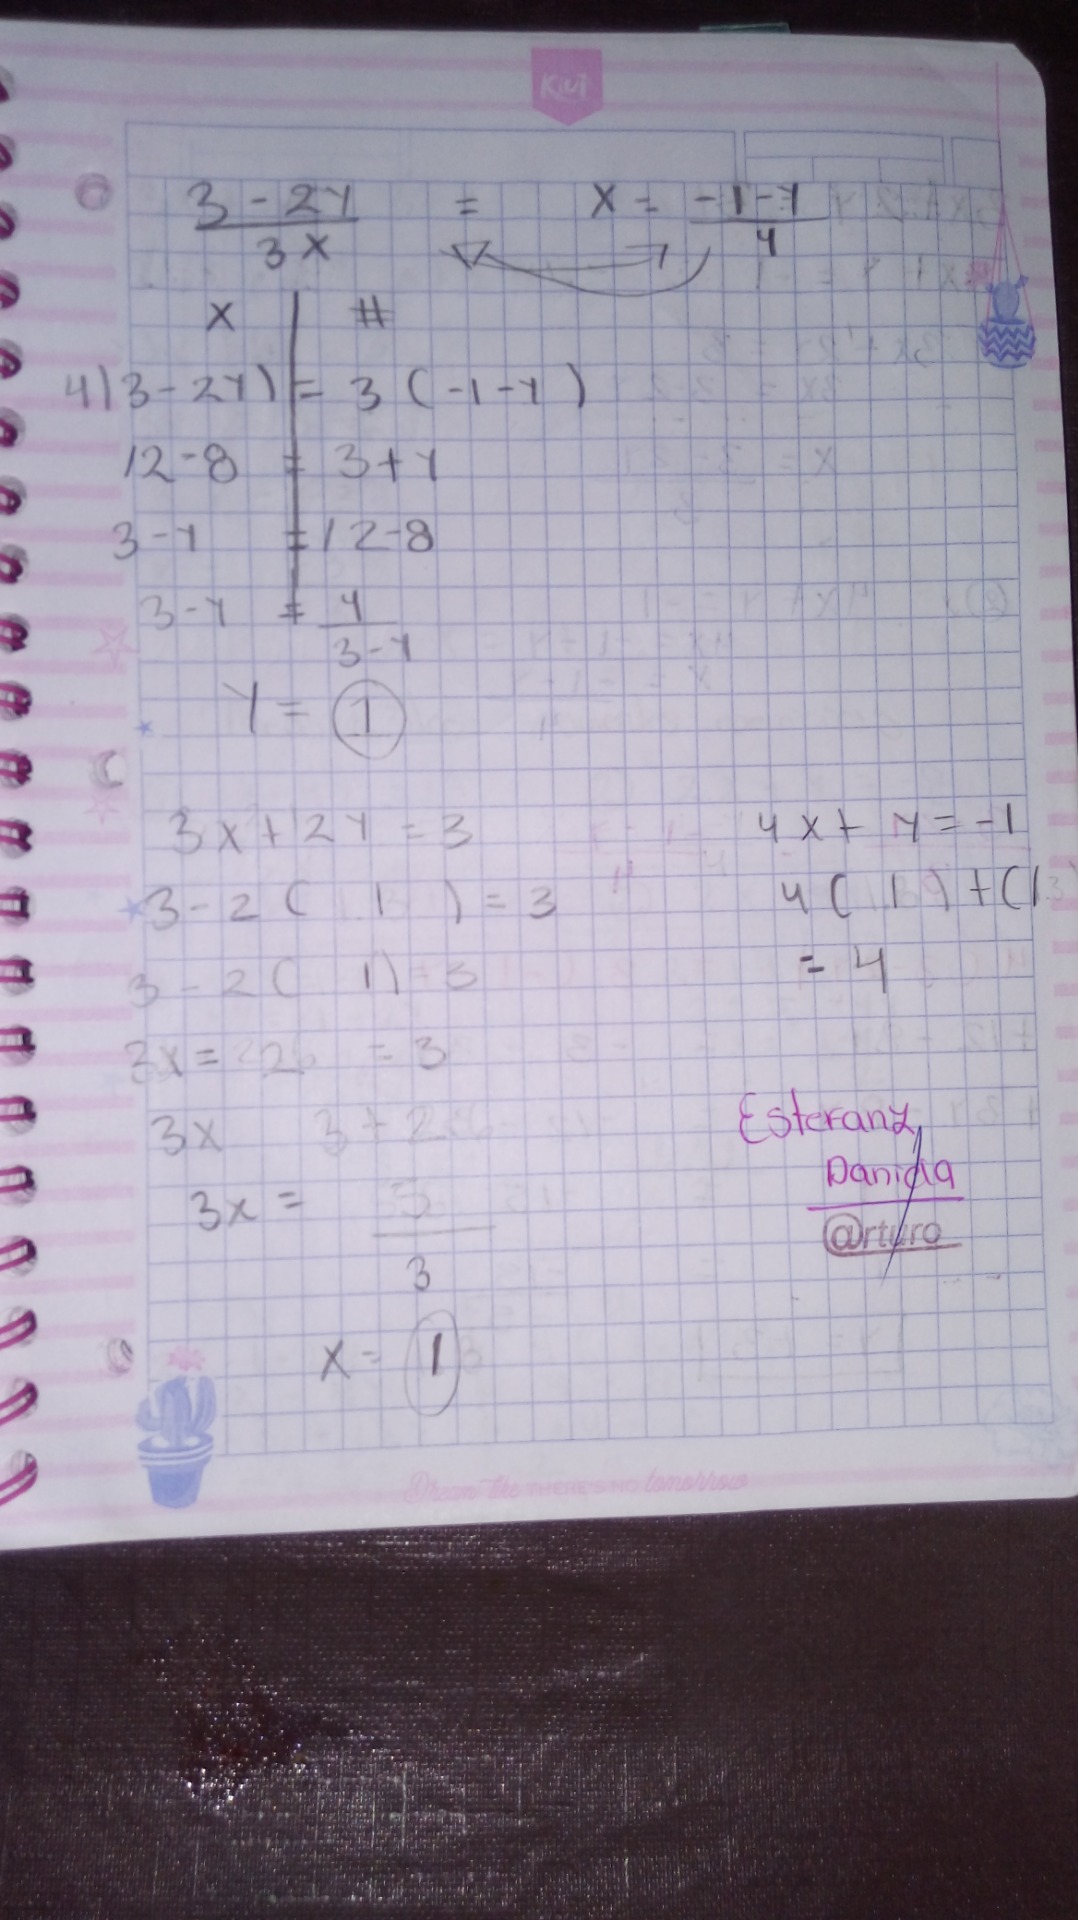 Kiut
3 - 2y / 3x = x = -1 - y / 4
x | #
4) 3 - 2y) = 3 ( -1 - y )
12 - 8 = 3 + y
3 - y = 12 - 8
3 - y = 4 / 3 - y
y = 1
3x + 2y = 3
3 - 2 ( 1 ) = 3
3 - 2 ( 1) = 3
3x = = 3
3x 3 + 2
3x = 3 / 3
x = 1
4x + y = -1
4 ( 1 ) + (1
= 4
Daniela
@rturo
THERE'S NO tomorrow